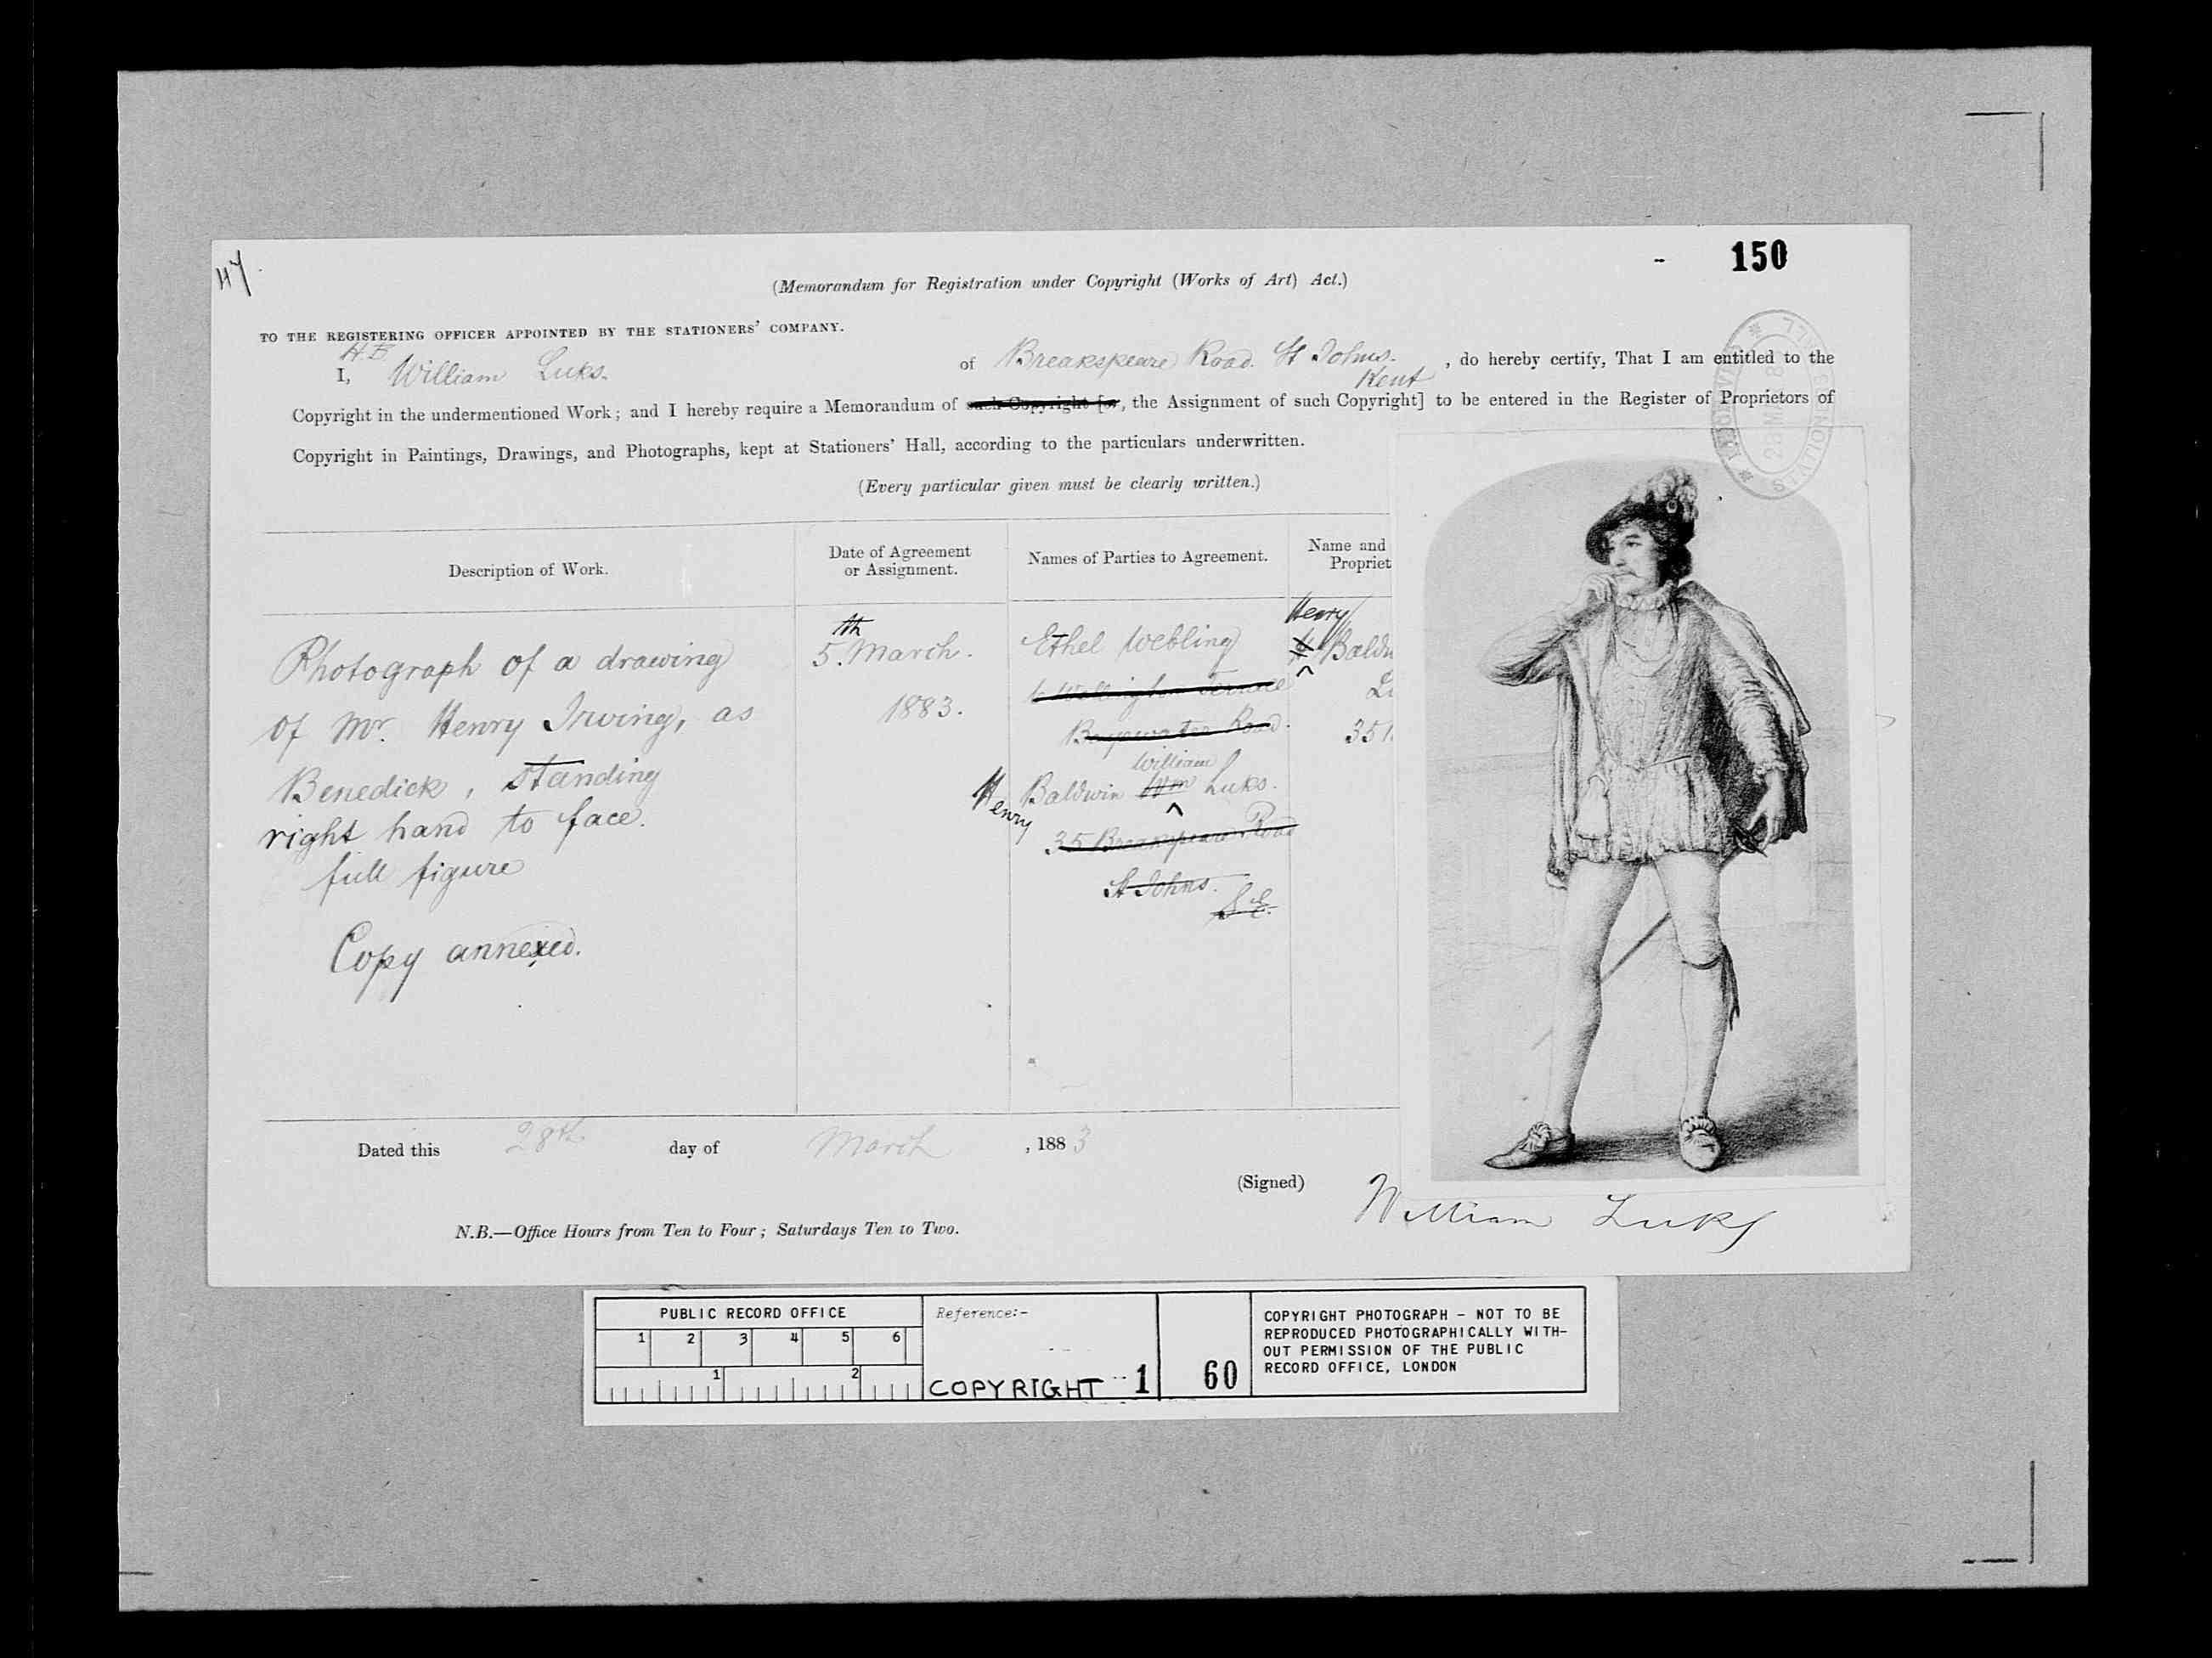 47
150
(Memorandum for Registration under Copyright (Works of Art) Act.)
TO THE REGISTERING OFFICER APPOINTED BY THE STATIONERS' COMPANY.
H. B.
I, William Luks. of Breakspeare Road. St Johns. Kent, do hereby certify, That I am entitled to the
Copyright in the undermentioned Work; and I hereby require a Memorandum of such Copyright [or, the Assignment of such Copyright] to be entered in the Register of Proprietors of
Copyright in Paintings, Drawings, and Photographs, kept at Stationers' Hall, according to the particulars underwritten.
(Every particular given must be clearly written.)
Description of Work.
Photograph of a drawing
of Mr. Henry Irving, as
Benedick, standing
right hand to face.
full figure
Copy annexed.
Date of Agreement
or Assignment.
5th March.
1883.
Names of Parties to Agreement.
Ethel Webling
Terrace
Road.
William
Henry Baldwin Wm Luks.
35 Breakspeare Road
St Johns.
S.E.
Name and
Propriet
Henry
H Baldw
Lu
35
Dated this 28th day of March, 1883
(Signed) William Luks
N.B.—Office Hours from Ten to Four; Saturdays Ten to Two.
PUBLIC RECORD OFFICE
1 2 3 4 5 6
1 2
Reference:-
COPYRIGHT 1 60
COPYRIGHT PHOTOGRAPH - NOT TO BE
REPRODUCED PHOTOGRAPHICALLY WITH-
OUT PERMISSION OF THE PUBLIC
RECORD OFFICE, LONDON